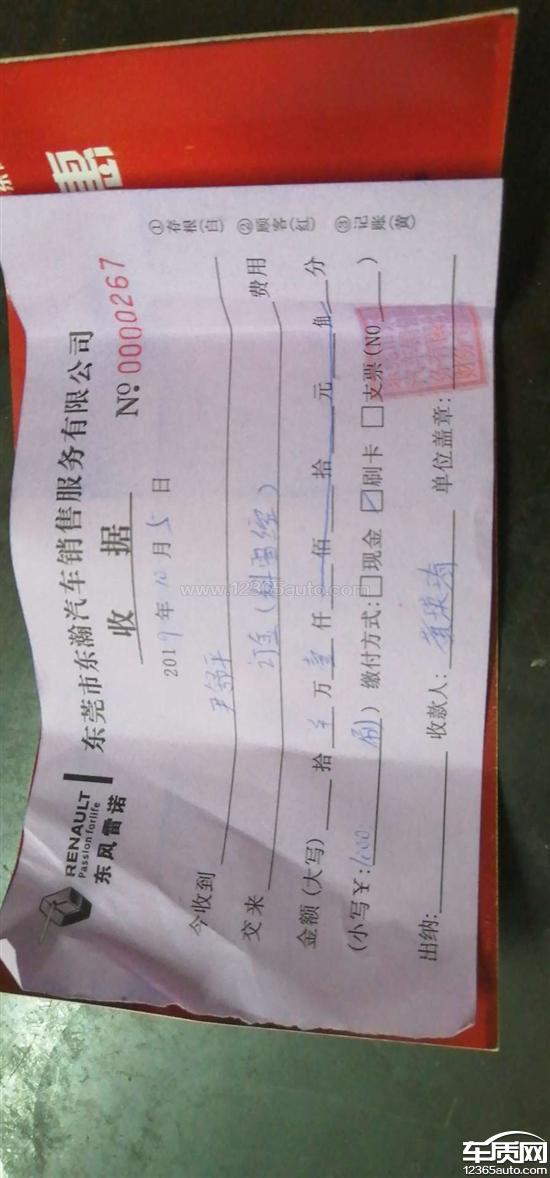 惠
RENAULT
Passion for life
东风雷诺
东莞市东瀚汽车销售服务有限公司
收 据
No. 0000267
2019 年 10 月 5 日
①存根(白) ②顾客(红) ③记账(黄)
今收到
交来 订金(科雷缤) 费用
金额(大写) 拾 万 壹 仟 佰 拾 元 角 分
(小写¥:1000 刷) 缴付方式:□现金 ☑刷卡 □支票(NO )
出纳: 收款人: 单位盖章:
www.12365auto.com
车质网
12365auto.com